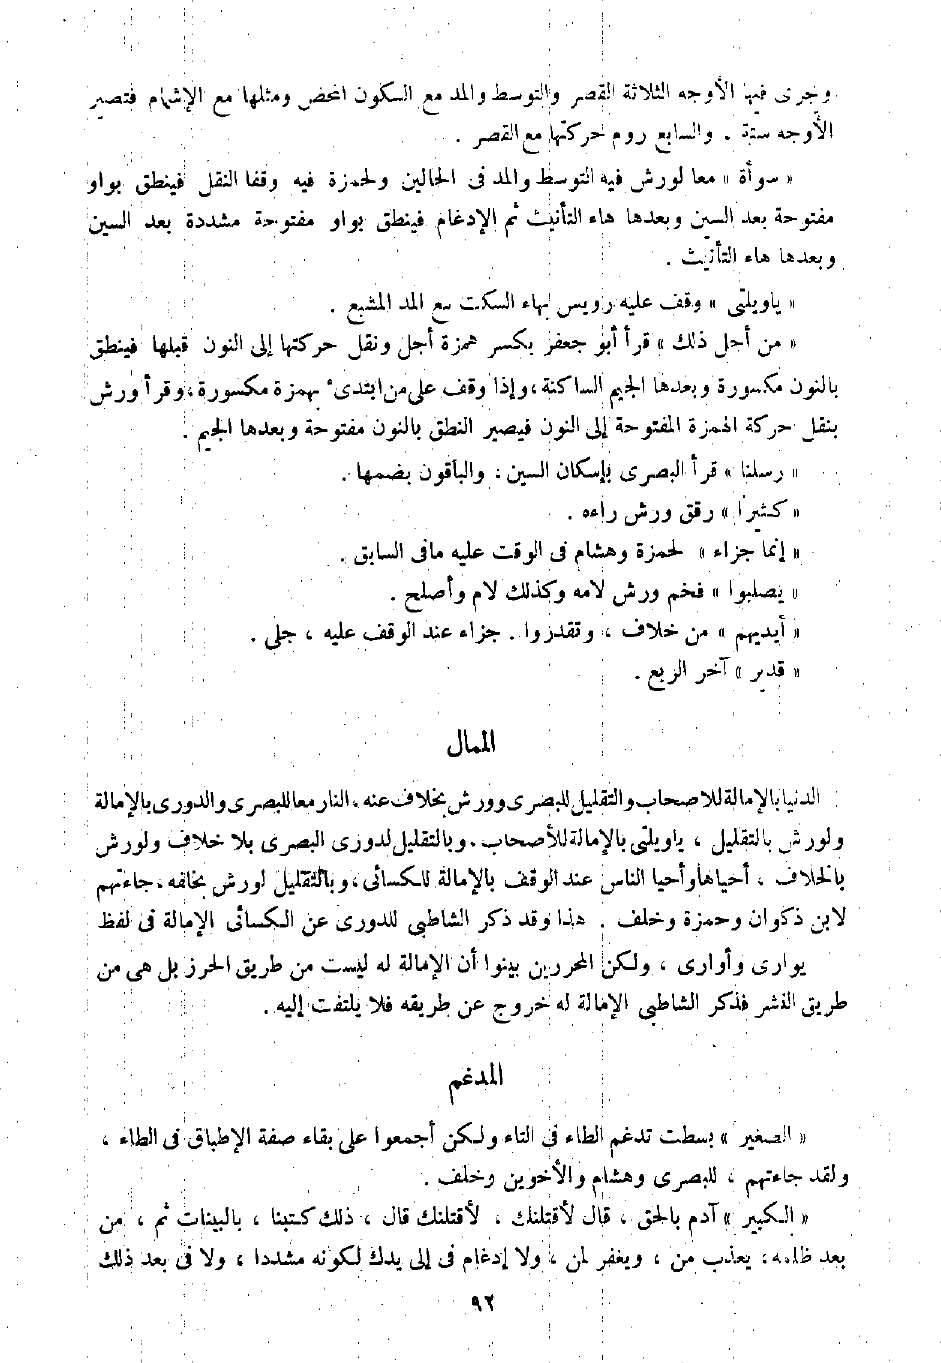 ويجرى فيها الأوجه الثلاثة القصر والتوسط والمد مع السكون المحض ومثلها مع الإشمام فتصير
الأوجه ستة . والسابع روم حركتها مع القصر .
« سوأة » معا لورش فيه التوسط والمد فى الحالين ولحمزة فيه وقفا النقل فينطق بواو
مفتوحة بعد السين وبعدها هاء التأنيث ثم الإدغام فينطق بواو مفتوحة مشددة بعد السين
وبعدها هاء التأنيث .
« ياويلتى » وقف عليه رويس بهاء السكت مع المد المشبع .
« من أجل ذلك » قرأ أبو جعفر بكسر همزة أجل ونقل حركتها إلى النون قبلها فينطق
بالنون مكسورة وبعدها الجيم الساكنة ، وإذا وقف على من ابتدىء بهمزة مكسورة ، وقرأ ورش
بنقل حركة الهمزة المفتوحة إلى النون فيصير النطق بالنون مفتوحة وبعدها الجيم .
« رسلنا » قرأ البصرى بإسكان السين ، والباقون بضمها .
« كثيرا » رقق ورش راءه .
« إنما جزاء » لحمزة وهشام فى الوقت عليه مافى السابق .
« يصلبوا » فخم ورش لامه وكذلك لام وأصلح .
« أيديهم » من خلاف ، وتقدروا . جزاء عند الوقف عليه ، جلى .
« قدير » آخر الربع .
الممال
الدنيا بالإمالة للاصحاب والتقليل للبصرى وورش بخلاف عنه ، النار معا للبصرى والدورى بالإمالة
ولورش بالتقليل ، ياويلتى بالإمالة للأصحاب . وبالتقليل لدورى البصرى بلا خلاف ولورش
بالخلاف ، أحياها وأحيا الناس عند الوقف بالإمالة للكسائى ، وبالتقليل لورش بخلفه ، جاءتهم
لابن ذكوان وحمزة وخلف . هذا وقد ذكر الشاطبى للدورى عن الكسائى الإمالة فى لفظ
يوارى وأوارى ، ولكن المحررين بينوا أن الإمالة له ليست من طريق الحرز بل هى من
طريق النشر فذكر الشاطبى الإمالة له خروج عن طريقه فلا يلتفت إليه .
المدغم
« الصغير » بسطت تدغم الطاء فى التاء ولكن أجمعوا على بقاء صفة الإطباق فى الطاء ،
ولقد جاءتهم ، للبصرى وهشام والأخوين وخلف .
« الكبير » آدم بالحق ، قال لأقتلنك ، لأقتلنك قال ، ذلك كتبنا ، بالبينات ثم ، من
بعد ظلمه ، يعذب من ، ويغفر لمن ، ولا إدغام فى إلى يدك لكونه مشددا ، ولا فى بعد ذلك
٩٢